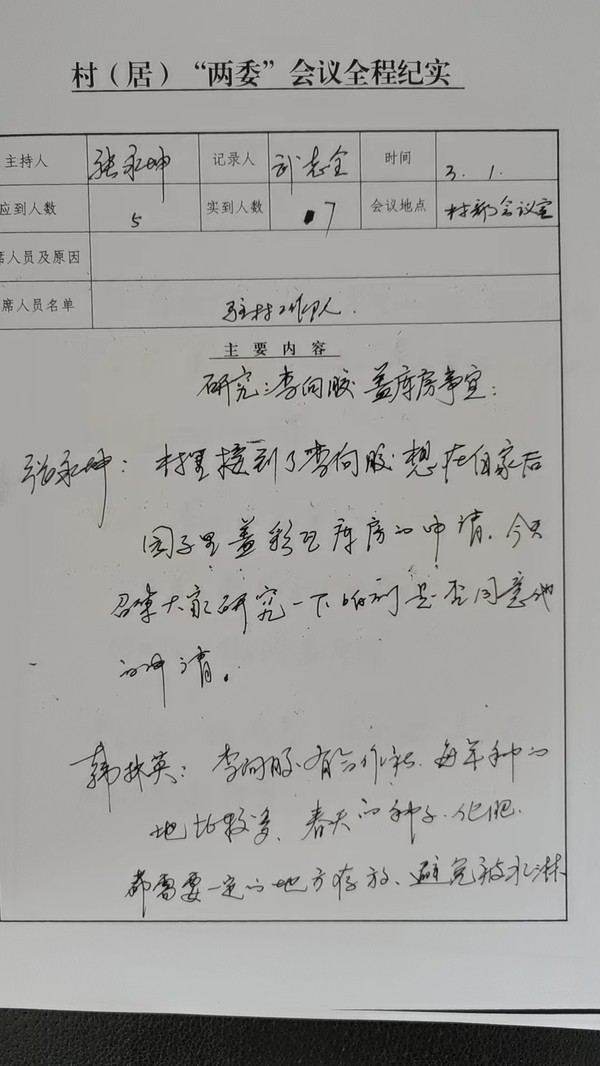 村（居）“两委”会议全程纪实
主持人 张永坤 记录人 武志全 时间 3.1.
应到人数 5 实到人数 7 会议地点 村部会议室
席人员及原因
席人员名单 驻村工作队.
主要内容
研究:李向胶 盖库房事宜:
张永坤: 村里接到了李向胶 想在自家后
园子里盖彩瓦库房的申请.今天
召集大家研究一下 是否同意他
的申请。
韩林英: 李向胶有合作社.每年种的
地比较多、春天的种子.化肥.
都需要一定的地方存放、避免被水淋